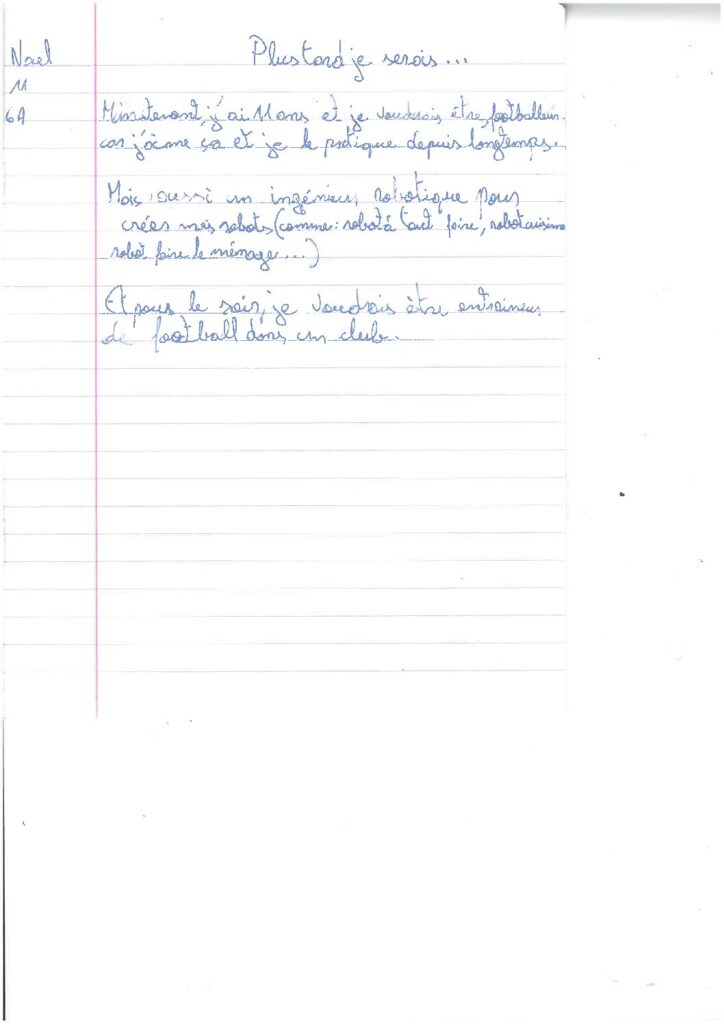 Nael
11
6A
Plus tard je serais...
Mintenant, j'ai 11 ans et je voudrais être footballeur
car j'aime ça et je le pratique depuis longtemps.
Mais aussi un ingénieur robotique pour
créer mes robots (comme: robot à tout faire, robot cuisine
robot faire le ménage...)
Et pour le soir, je voudrais être entraineur
de football dans un club.